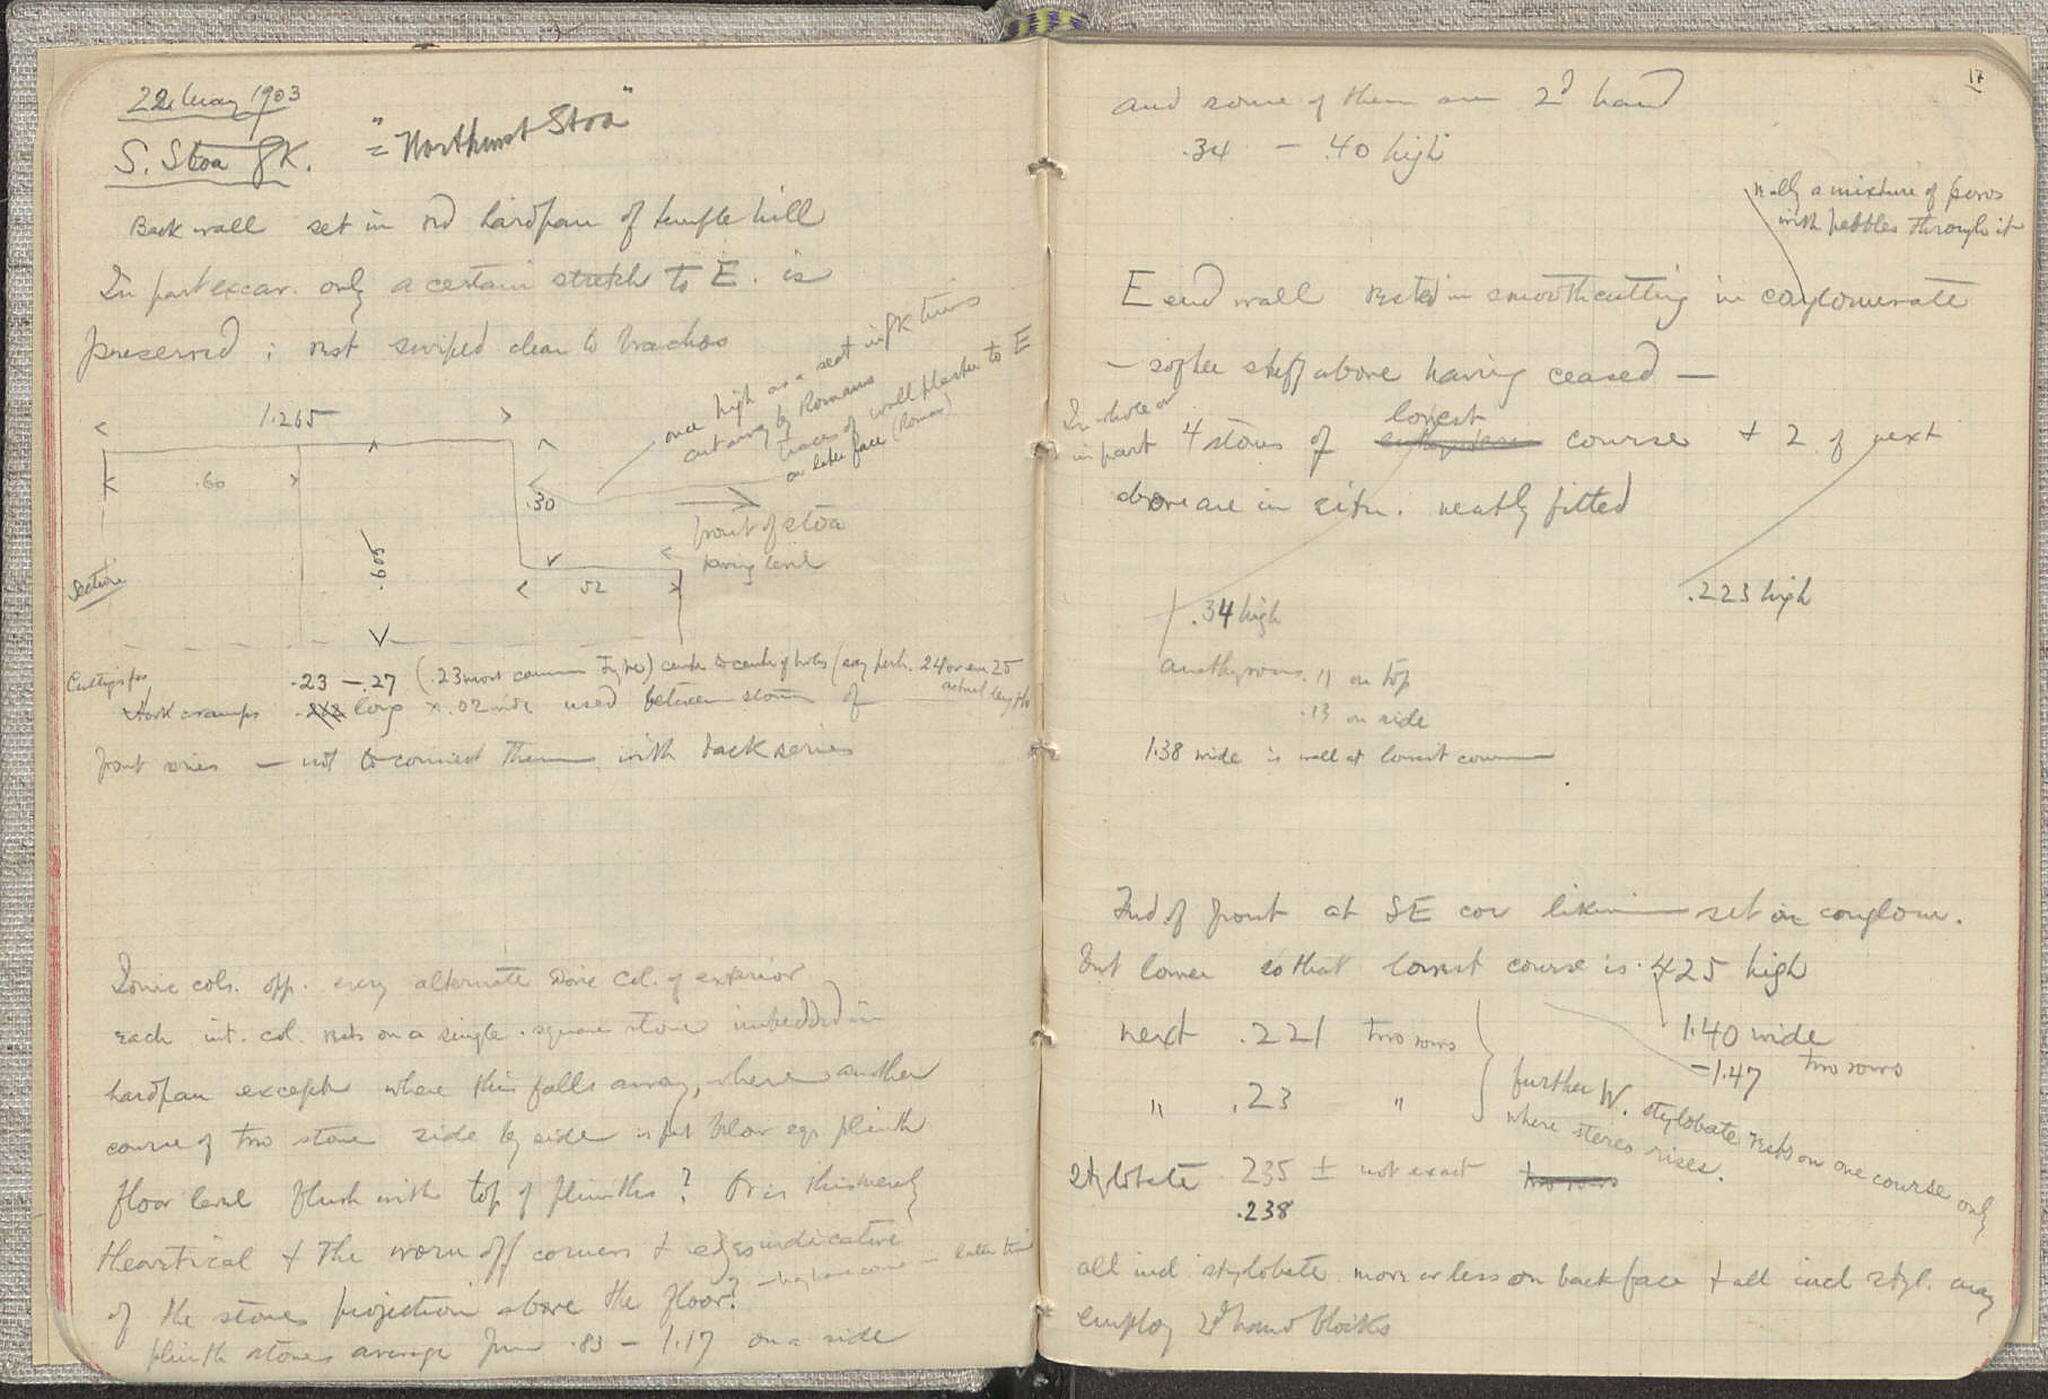 22 May 1903
S. Stoa GK. = "Northwest Stoa"
Back wall set in red hardpan of temple hill
In part excav. only a certain stretch to E. is
preserved; rest swiped clean to brachos
once high as a seat in GK times
cut away by Romans
traces of wall plaster to E
on later face (Roman)
1.265
.60
.30
front of stoa
paving level
.605
52
Section
Cuttings for .23 – .27 (.23 most common ) centre to centre of holes (say perh. 24 or even 25
actual length
Hook cramps long × .02 wide used between stones of
front series — not to connect them with back series
Ionic cols. opp. every alternate Doric col. of exterior
Each int. col. rests on a single square stone imbedded in
hardpan except where this falls away, where another
course of two stones side by side is put below sq. plinth
floor level flush with top of plinths? Or is this merely
theoretical + the worn off corners + edges indicative
of the stones projection above the floor? — in later time
plinth stones average from .83 – 1.17 on a side
17
and some of them are 2d hand
.34 – .40 high
really a mixture of poros
with pebbles through it
E end wall rested in smooth cutting in conglomerate
– softer stuff above having ceased –
In whole or
in part 4 stones of lowest course + 2 of next
above are in situ. neatly fitted
.223 high
.34 high
anathyrosis .11 on top
.13 on side
1.38 wide is wall at lowest course
End of front at SE cor likewise set in conglom.
but lower so that lowest course is .425 high
1.40 wide
–1.47 two rows
next .221 two rows
" .23 "
further W. stylobate rests on one course only
where stereo rises.
Stylobate .235 ± not exact two rows
.238
all incl. stylobate more or less on back face + all incl styl. may
employ 2d hand blocks